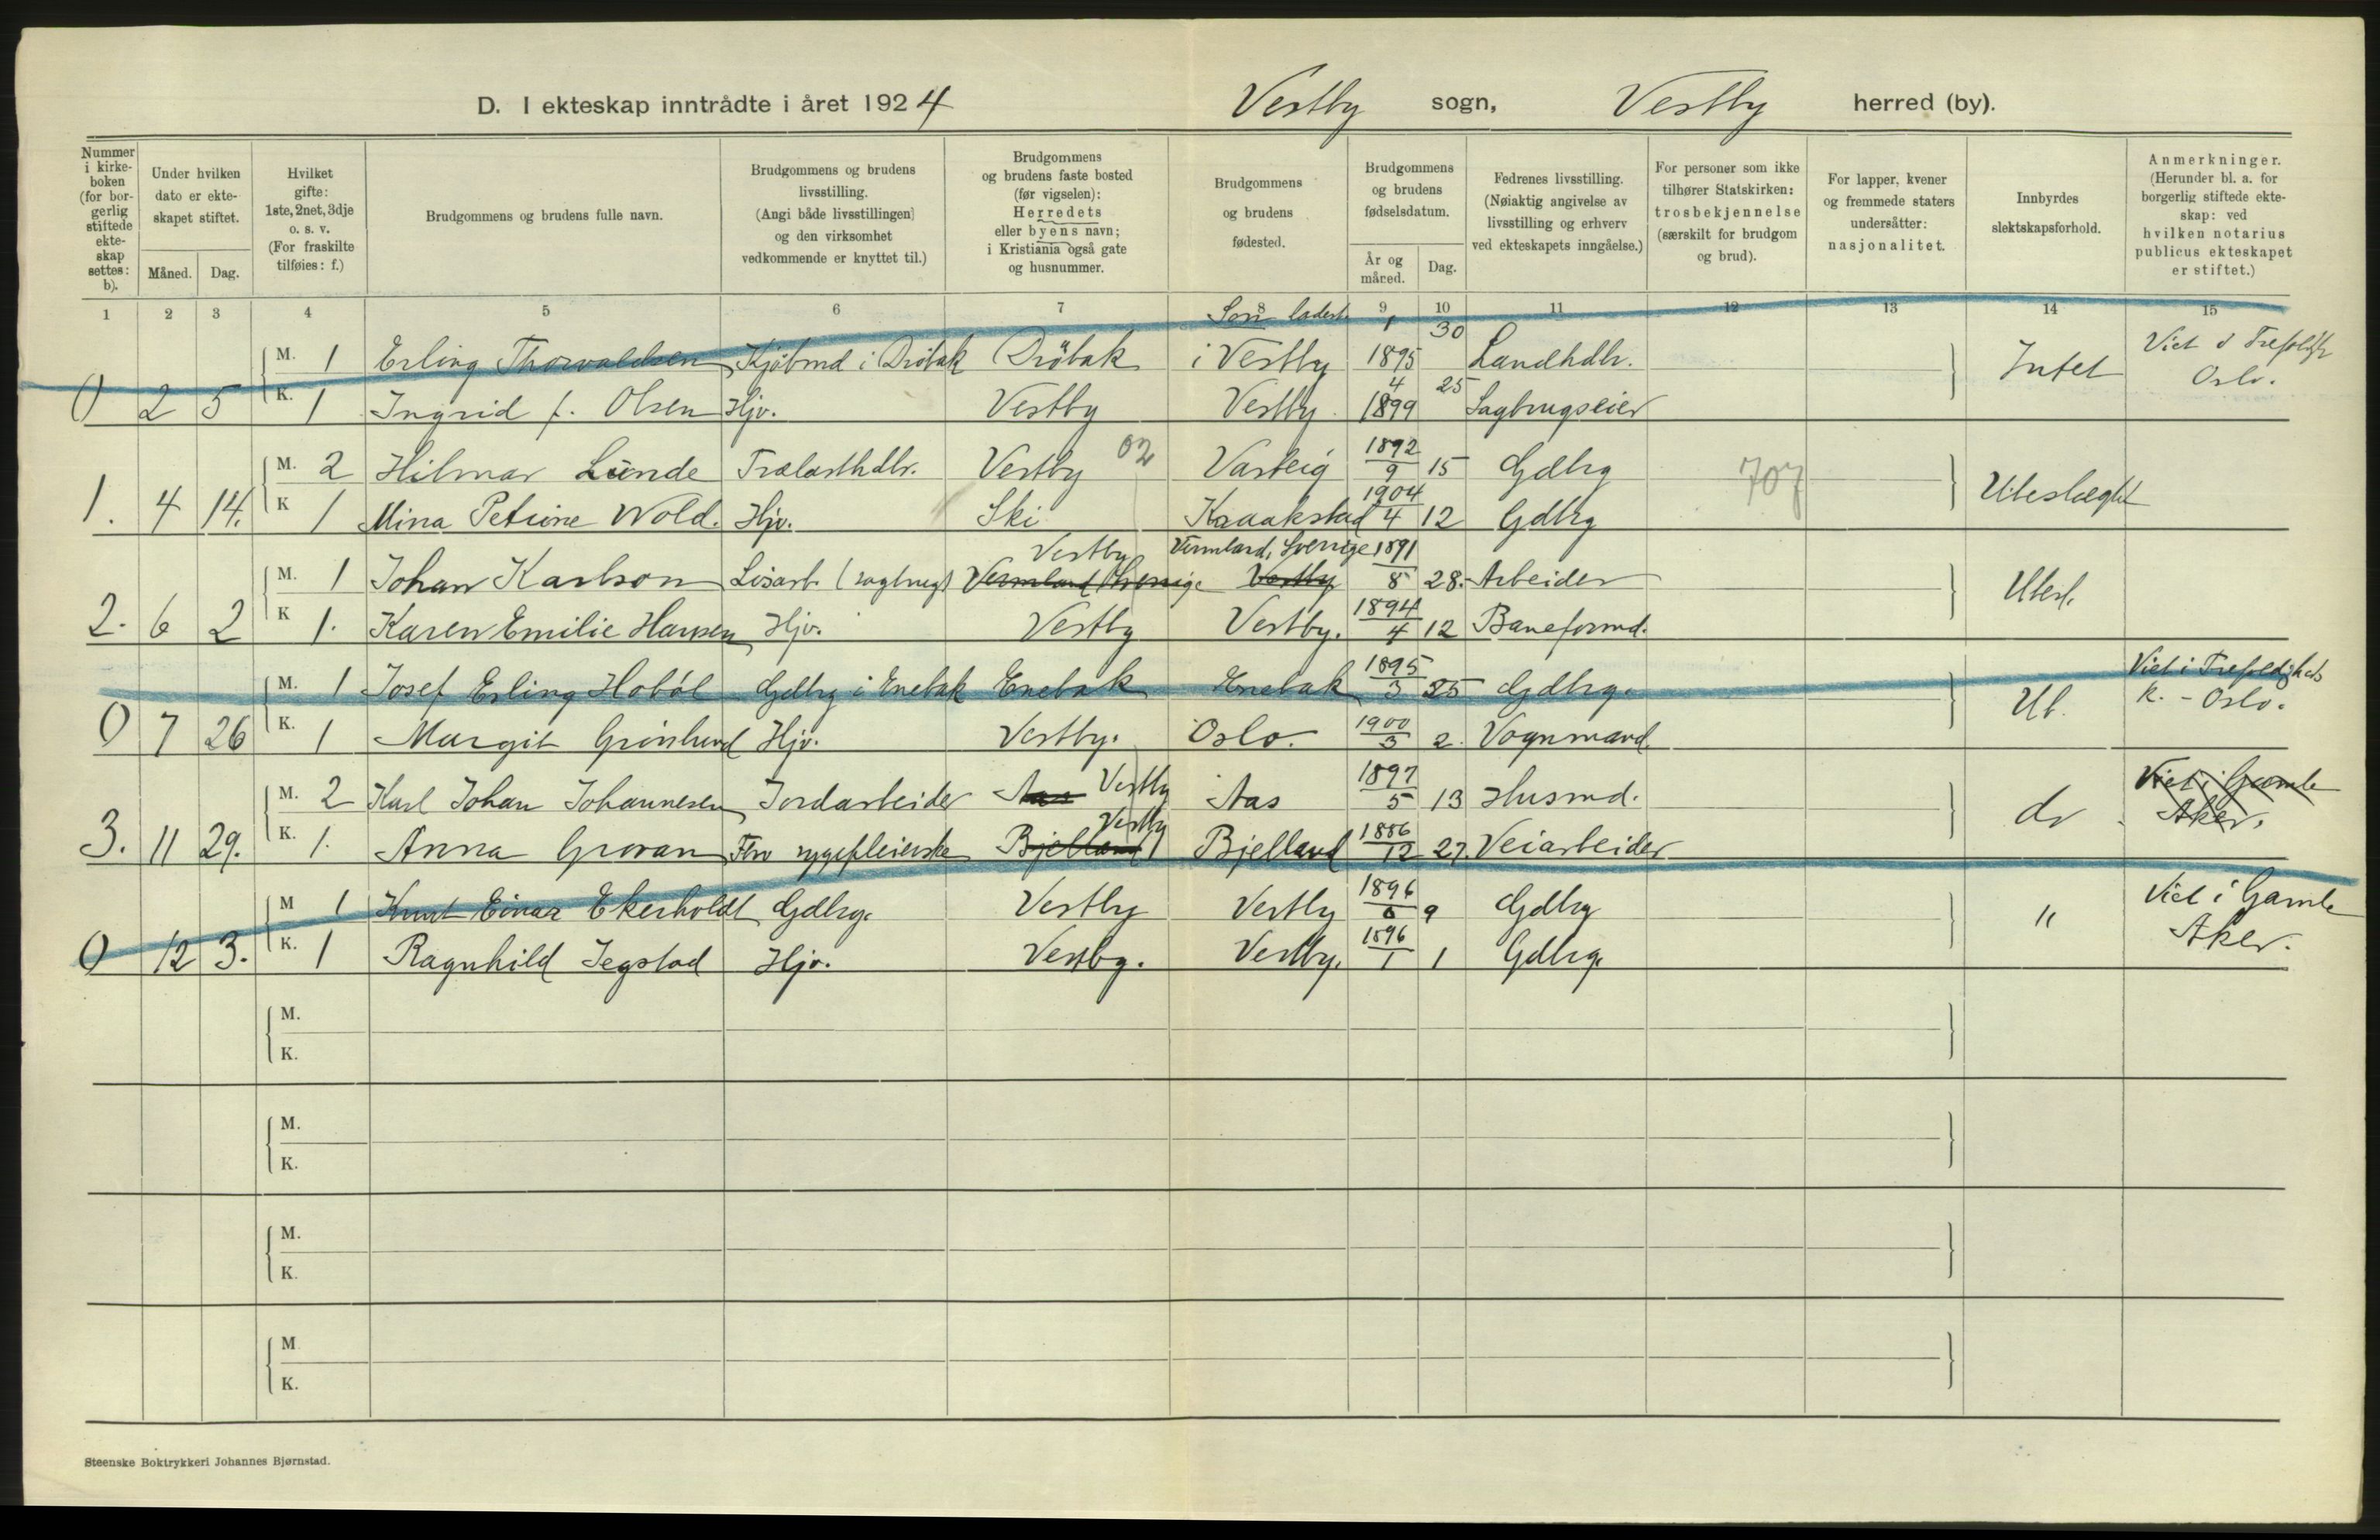 D. I ekteskap inntrådte i året 1924 Vestby sogn, Vestby herred (by).
Nummer i kirke-boken (for bor-gerlig stiftede ekte-skap settes: b).
Under hvilken dato er ekte-skapet stiftet.
Måned. Dag.
Hvilket gifte: 1ste, 2net, 3dje o. s. v. (For fraskilte tilføies: f.)
Brudgommens og brudens fulle navn.
Brudgommens og brudens livsstilling. (Angi både livsstillingen og den virksomhet vedkommende er knyttet til.)
Brudgommens og brudens faste bosted (før vigselen): Herredets eller byens navn; i Kristiania også gate og husnummer.
Brudgommens og brudens fødested.
Brudgommens og brudens fødselsdatum.
År og måned. Dag.
Fedrenes livsstilling. (Nøiaktig angivelse av livsstilling og erhverv ved ekteskapets inngåelse.)
For personer som ikke tilhører Statskirken: trosbekjennelse (særskilt for brudgom og brud).
For lapper, kvener og fremmede staters undersåtter: nasjonalitet.
Innbyrdes slektskapsforhold.
Anmerkninger. (Herunder bl. a. for borgerlig stiftede ekte-skap: ved hvilken notarius publicus ekteskapet er stiftet.)
1 2 3 4 5 6 7 8 9 10 11 12 13 14 15
Son ladest. 1 30
M. 1 Erling Thorvaldsen Kjøbmd i Drøbak Drøbak i Vestby 1895 Landhdlr. Intet Viet i Trefoldigh Oslo.
0 2 5 K. 1 Ingrid f. Olsen Hjv. Vestby Vestby. 4 1899 25 Sagbrugseier
M. 2 Hilmar Lunde Trælasthdlr. Vestby 02 Varteig 1892 9 15 Gdbrg 707 Ubeslægtet
1. 4 14. K 1 Mina Petrine Wold. Hjv. Ski Kraakstad 1904 4 12 Gdbrg
Vestby Vermland, Sverige 1891
M. 1 Johan Karlson Løsarb. (sagbrug) Vermland Sverige Vestby 8 28. Arbeider Ubesl.
2. 6 2 K 1. Karen Emilie Hansen Hjv. Vestby Vestby. 1894 4 12 Baneformd.
M. 1 Josef Erling Hobøl Gdbrg i Enebak Enebak Enebak 1895 3 25 Gdbrg. Ub. Viet i Trefoldigheds k. - Oslo.
0 7 26 K. 1 Margit Grönlund Hjv. Vestby. Oslo. 1900 3 2. Vognmand.
M. 2 Karl Johan Johannesen Jordarbeider Aas Vestby Aas 1897 5 13 Husmd. do Viet i Gamle Aker.
3. 11 29. K. 1. Anna Grovan sygepleierske Bjelland Vestby Bjelland 1886 12 27. Veiarbeider
M 1 Knut Einar Ekerholdt Gdbrg. Vestby Vestby 1896 6 9 Gdbrg " Viet i Gamle Aker.
0 12 3. K. 1 Ragnhild Tegstad Hjv. Vestby. Vestby. 1896 1 1 Gdbrg.
M.
K.
M.
K.
M.
K.
M
K.
Steenske Boktrykkeri Johannes Bjørnstad.